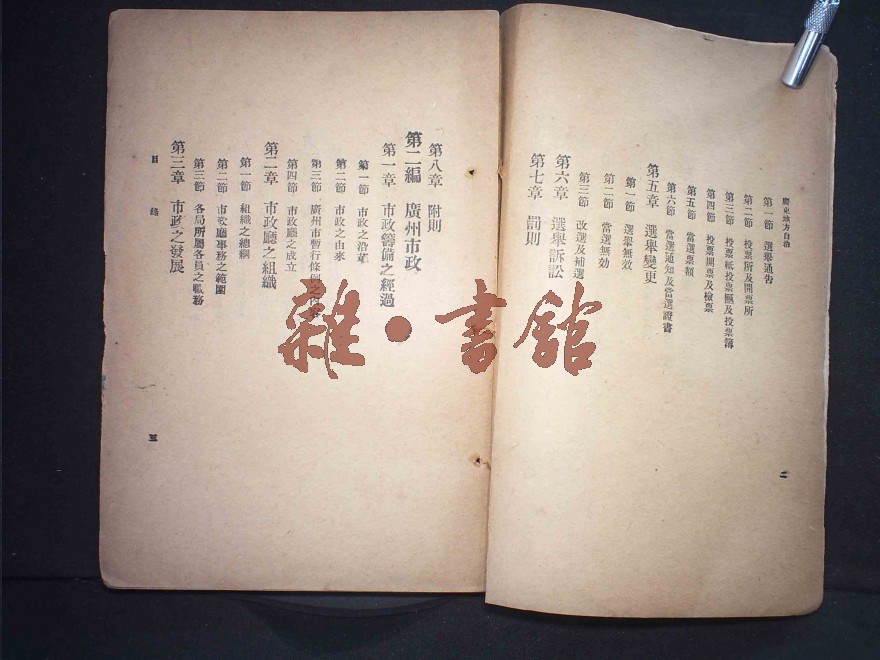 廣東地方自治
第一節 選舉通告
第二節 投票所及開票所
第三節 投票紙投票匭及投票簿
第四節 投票開票及檢票
第五節 當選票額
第六節 當選通知及當選證書
第五章 選舉變更
第一節 選舉無效
第二節 當選無効
第三節 改選及補選
第六章 選舉訴訟
第七章 罰則
二
第八章 附則
第二編 廣州市政
第一章 市政籌備之經過
第一節 市政之沿革
第二節 市政之由來
第三節 廣州市暫行條例之
第四節 市政廳之成立
第二章 市政廳之組織
第一節 組織之總綱
第二節 市政廳事務之範圍
第三節 各局所屬各員之職務
第三章 市政之發展
目錄
三
雜·書館